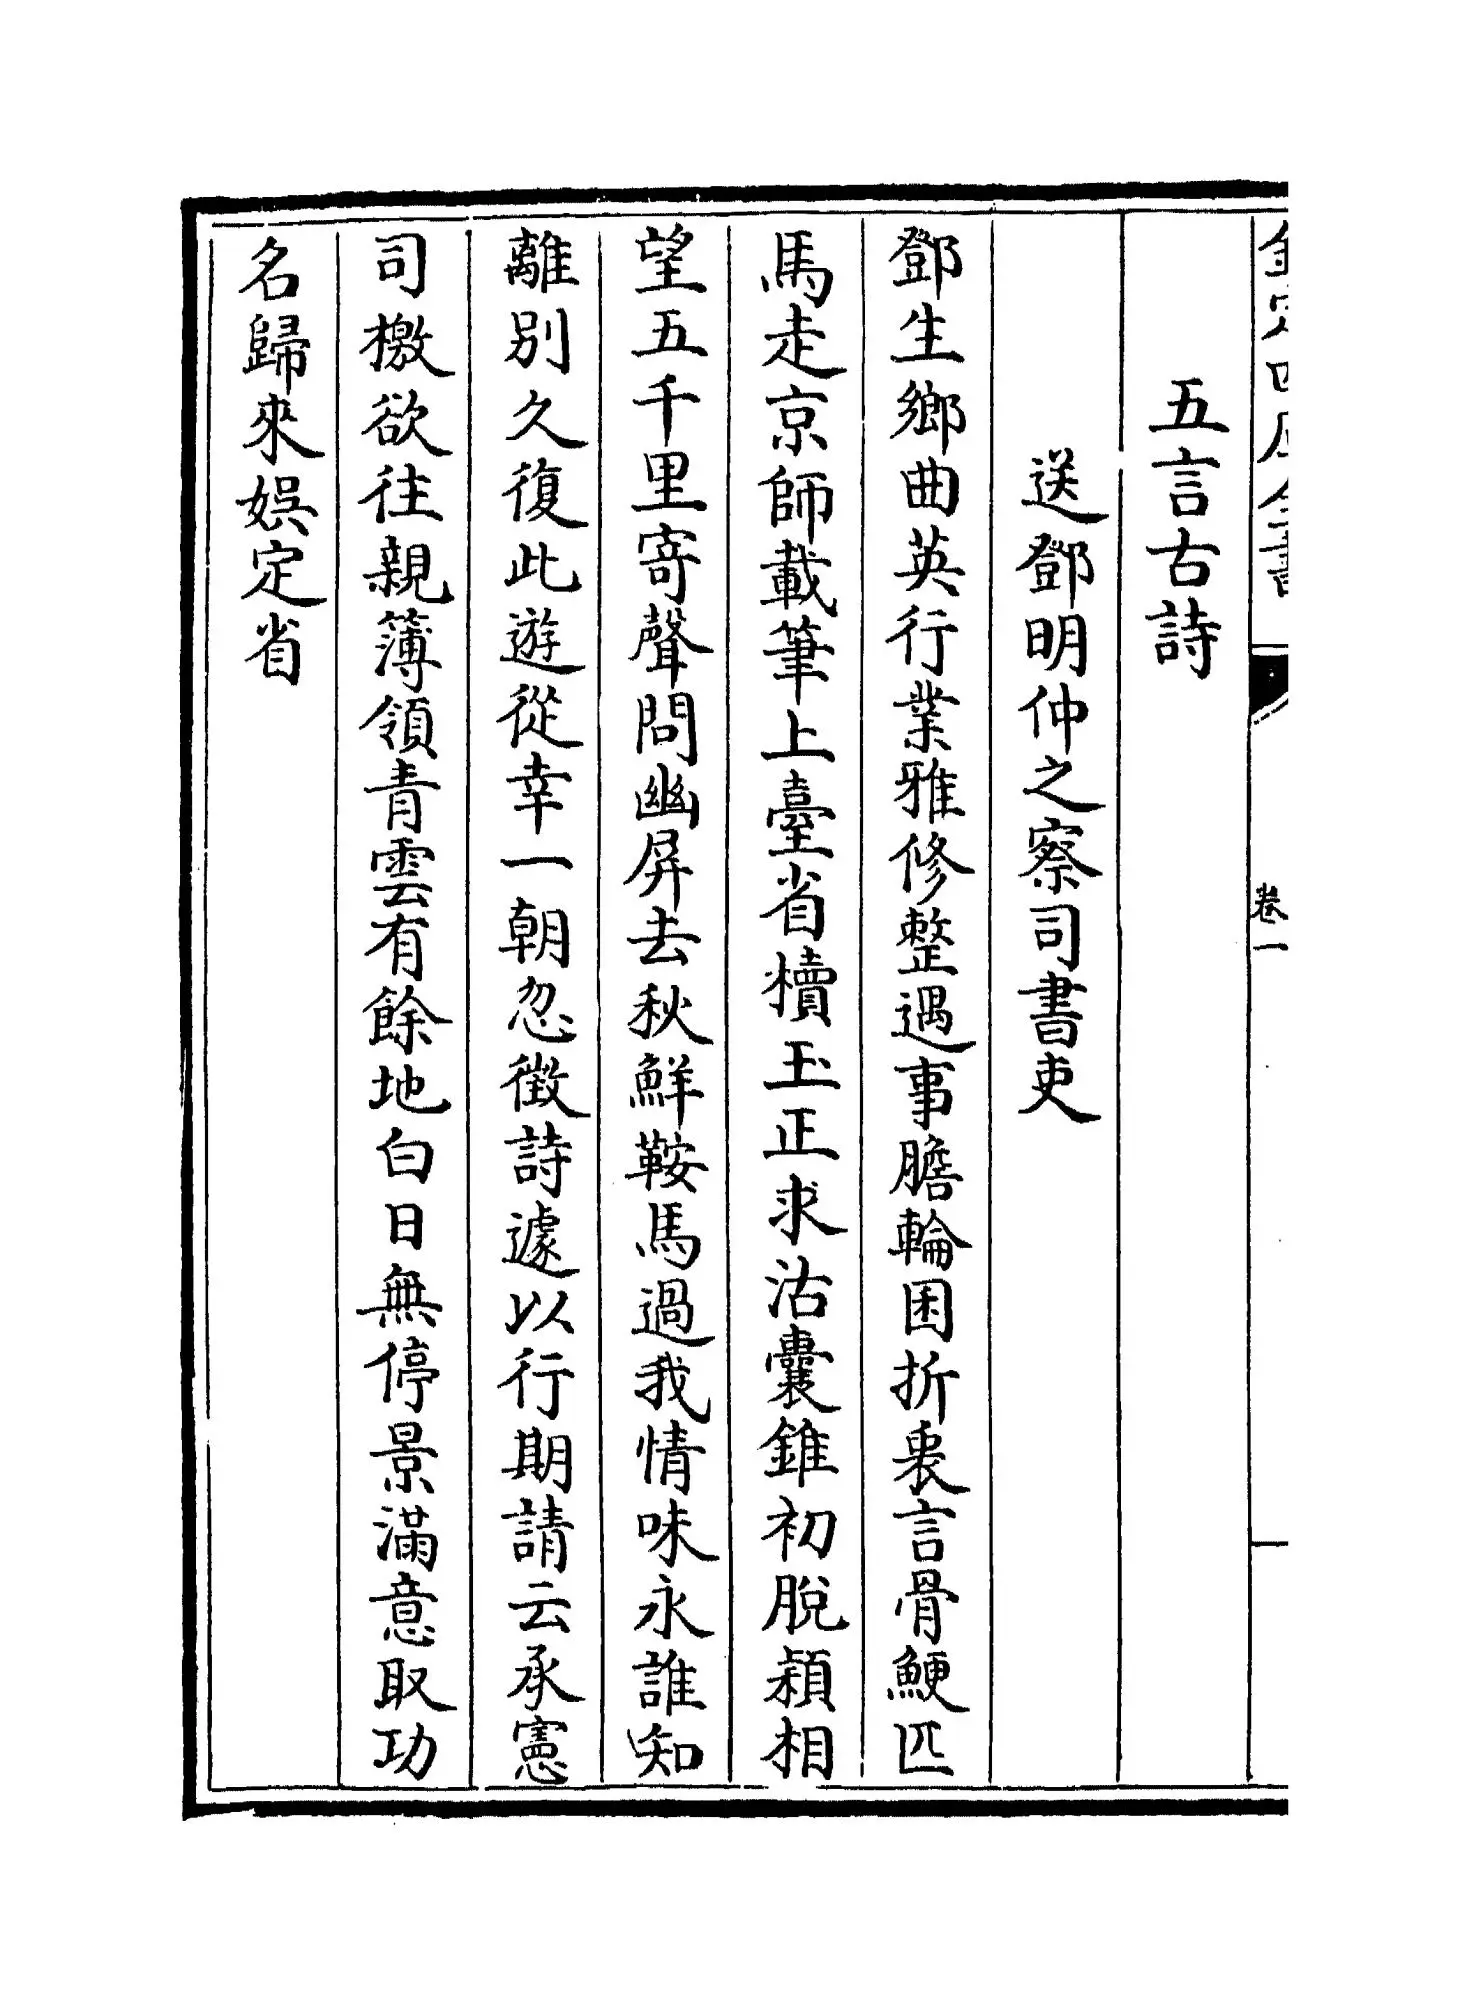 欽定四庫全書
卷一
五言古詩
送鄧明仲之察司書吏
鄧生鄉曲英行業雅修整遇事膽輪囷折衷言骨鯁匹
馬走京師載筆上臺省櫝玉正求沽囊錐初脫穎相
望五千里寄聲問幽屏去秋鮮鞍馬過我情味永誰知
離別久復此遊從幸一朝忽徴詩遽以行期請云承憲
司檄欲往親簿領青雲有餘地白日無停景滿意取功
名歸來娯定省